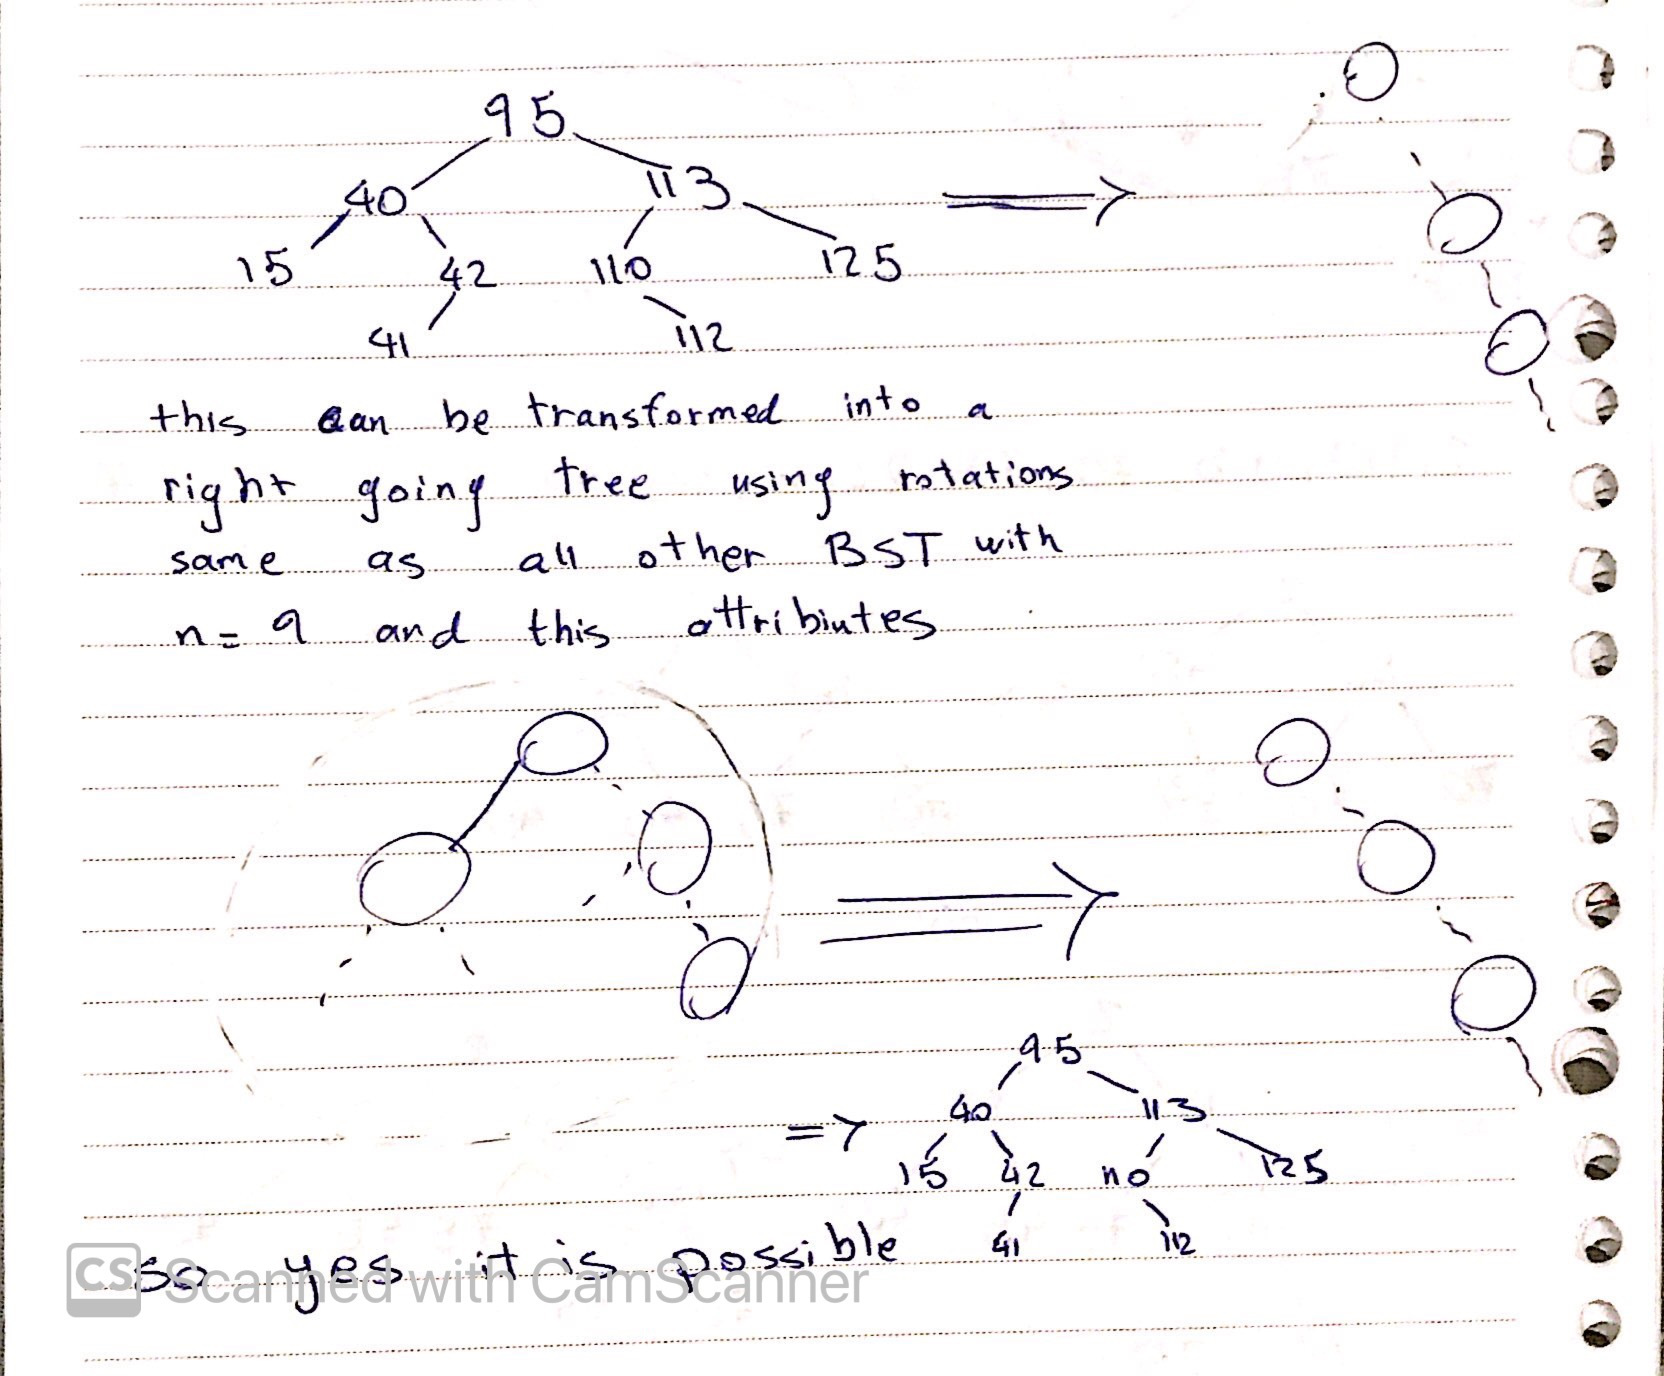 95
40 113
15 42 110 125
41 112
this can be transformed into a
right going tree using rotations
same as all other BST with
n = 9 and this attribiutes
95
40 113
=>
15 42 110 125
41 112
so yes it is possible
CS Scanned with CamScanner